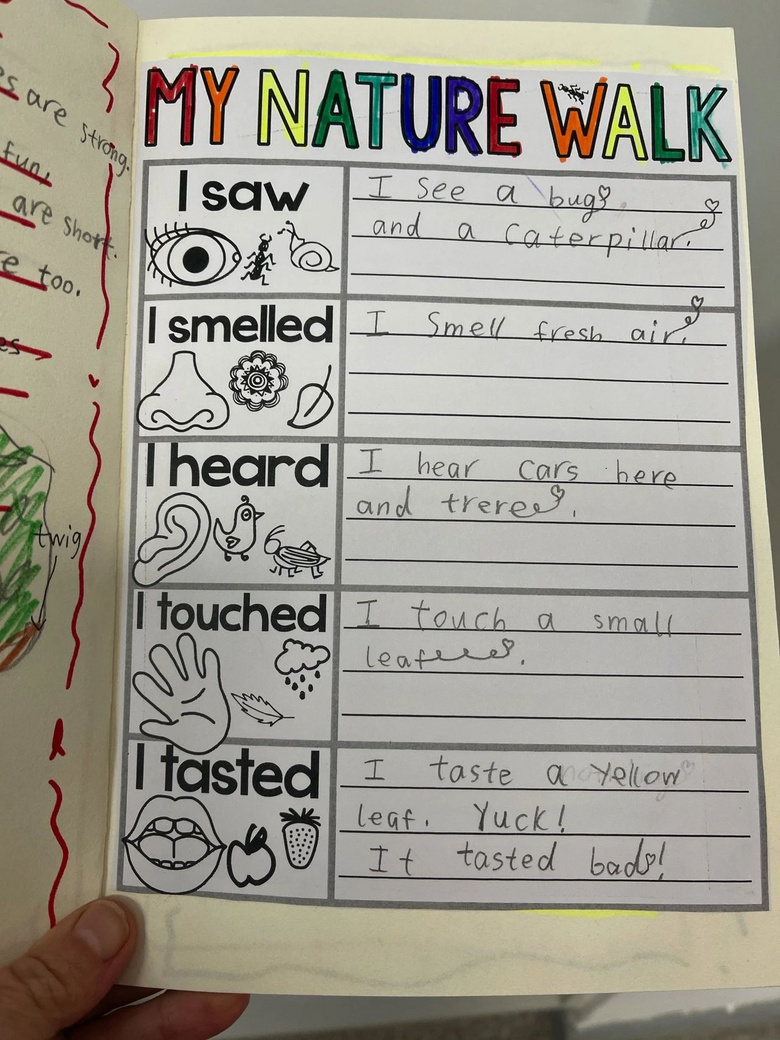 es are strong.
fun,
are short.
re too.
es
twig
MY NATURE WALK
I saw
I see a bug
and a caterpillar.
I smelled
I smell fresh air.
I heard
I hear cars here
and trere.
I touched
I touch a small
leaf.
I tasted
I taste a yellow
leaf. Yuck!
It tasted bad!